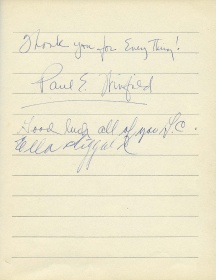 Thank you for Everything!
Paul E. Winfield
Good luck all of you
Ella